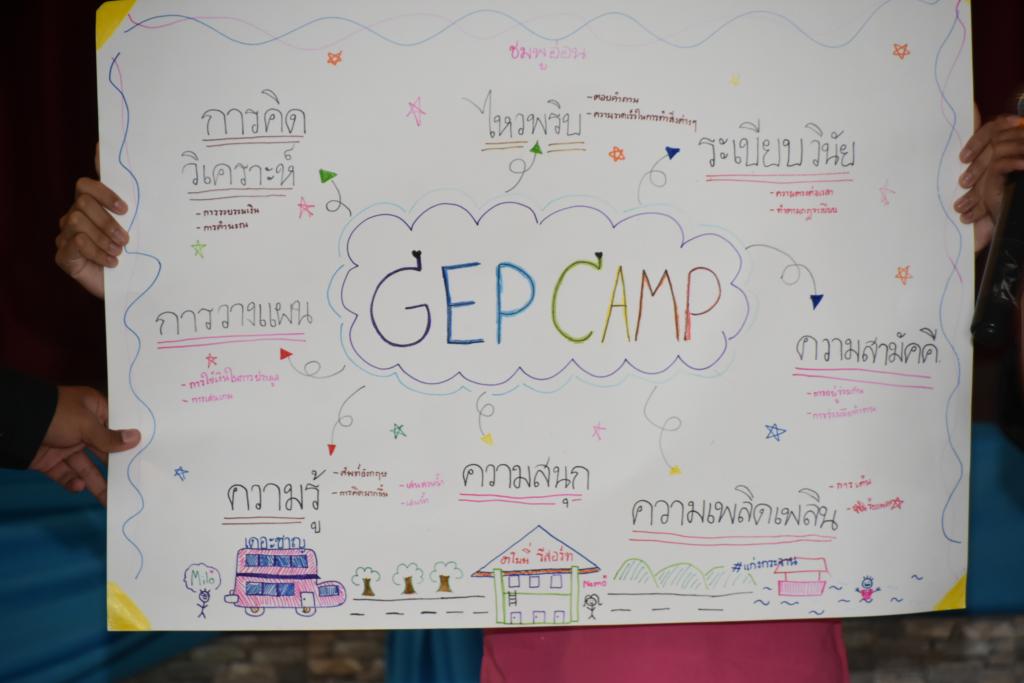 ชมพูอ่อน
การคิด
วิเคราะห์
- การคำนวณ
ไหวพริบ
- ตอบคำถาม
- ความรวดเร็วในการทำสิ่งต่างๆ
ระเบียบวินัย
- ความตรงต่อเวลา
- ทำตามกฎระเบียบ
GEP CAMP
การวางแผน
- การใช้เงินในการประมูล
- การเล่นเกม
ความสามัคคี
- การอยู่ร่วมกัน
- การร่วมมือทำงาน
ความรู้
- ศัพท์อังกฤษ
- การคิดมากขึ้น
ความสนุก
- เล่นสวนน้ำ
ความเพลิดเพลิน
- การเต้น
เดอะชาญ
Milo
รีสอร์ท
Namo
#แก่งกระจาน